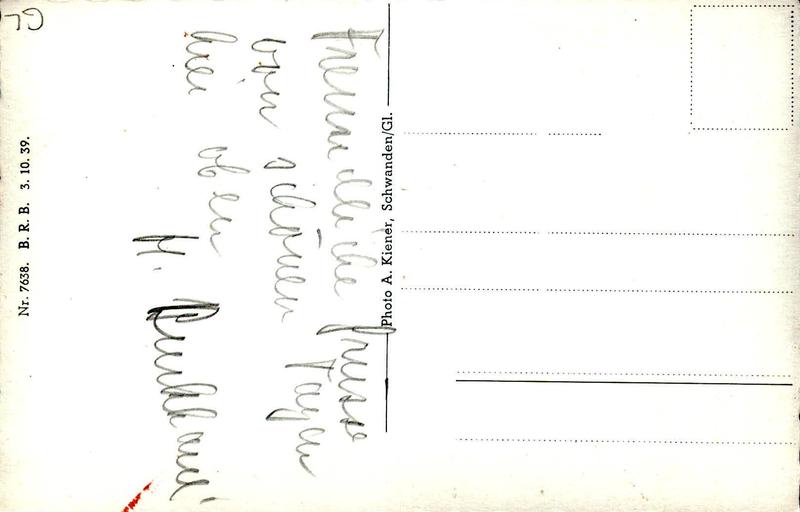 GL
Nr. 7638. B. R. B. 3. 10. 39.
Freundliche Grüsse
von schönen Tagen
hier oben
H.
Photo A. Kiener, Schwanden/Gl.